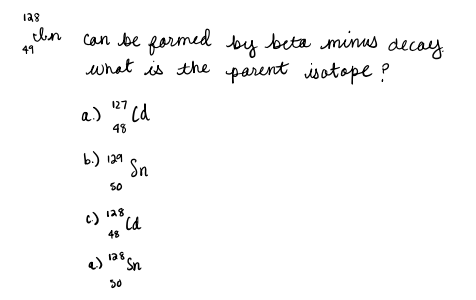 128
49 In can be formed by beta minus decay.
what is the parent isotope?
a.) 127
48 Cd
b.) 129
50 Sn
c.) 128
48 Cd
a.) 128
50 Sn